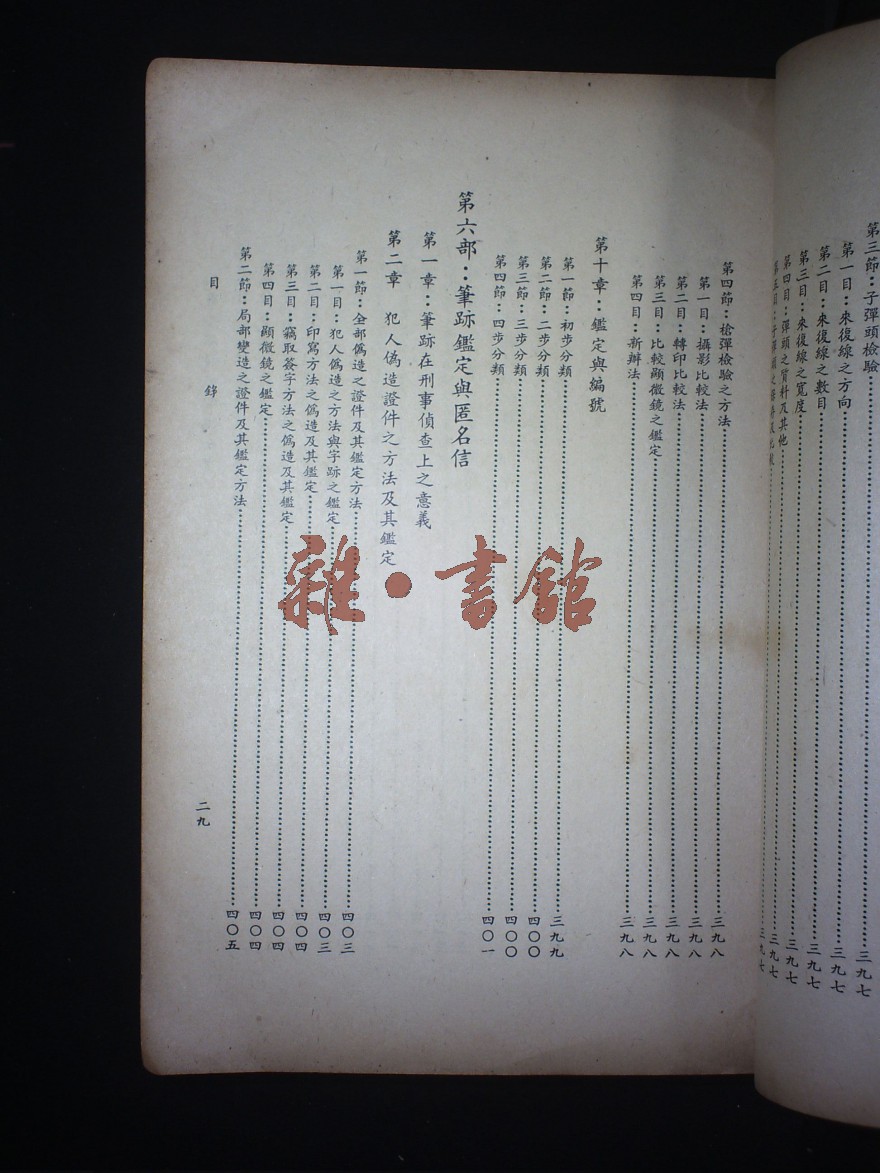 第三節：子彈頭檢驗
第一目：來復線之方向……三九七
第二目：來復線之數目……三九七
第三目：來復線之寬度……三九七
第四目：彈頭之質料及其他……三九七
第五目：子彈頭之……三九七
第四節：槍彈檢驗之方法……三九八
第一目：攝影比較法……三九八
第二目：轉印比較法……三九八
第三目：比較顯微鏡之鑑定……三九八
第四目：新辦法……三九八
第十章：鑑定與編號
第一節：初步分類……三九九
第二節：二步分類……四〇〇
第三節：三步分類……四〇〇
第四節：四步分類……四〇一
第六部：筆跡鑑定與匿名信
第一章：筆跡在刑事偵查上之意義
第二章　犯人偽造證件之方法及其鑑定
第一節：全部偽造之證件及其鑑定方法……四〇三
第一目：犯人偽造之方法與字跡之鑑定……四〇三
第二目：印寫方法之偽造及其鑑定……四〇四
第三目：竊取簽字方法之偽造及其鑑定……四〇四
第四目：顯微鏡之鑑定……四〇四
第二節：局部變造之證件及其鑑定方法……四〇五
目錄
二九
雜·書館